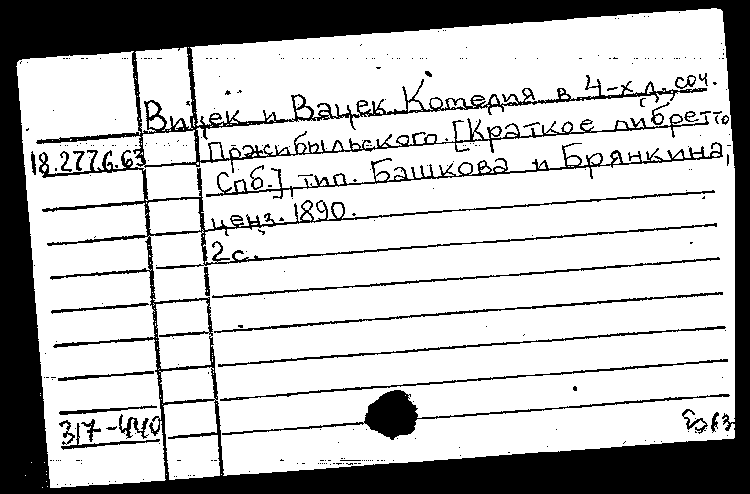 Вицек и Вацек. Комедия в 4-х д., соч.
Пржибыльского. [Краткое либретто
18.277.6.63
Спб.], тип. Башкова и Брянкина,
ценз. 1890.
2 с.
317-440